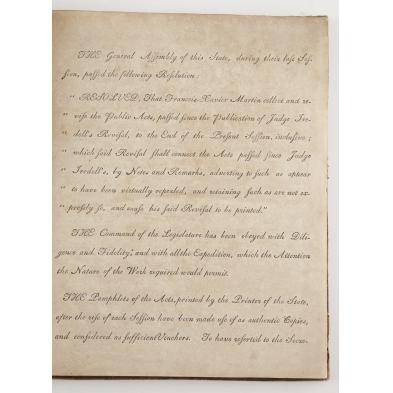 THE General Assembly of this State, during their last Ses-
sion, passed the following Resolution:
" RESOLVED, That Francois-Xavier Martin collect and re-
" vise the Public Acts, passed since the Publication of Judge Ire-
" dell's Revisal, to the End of the Present Session, inclusive;
" which said Revisal shall connect the Acts passed since Judge
" Iredell's, by Notes and Remarks, adverting to such as appear
" to have been virtually repealed, and retaining such as are not ex-
" pressly so, and cause his said Revisal to be printed."
THE Command of the Legislature has been obeyed with Dili-
gence and Fidelity, and with all the Expedition, which the Attention
the Nature of the Work required would permit.
THE Pamphlets of the Acts, printed by the Printer of the State,
after the rise of each Session have been made use of as authentic Copies,
and considered as sufficient Vouchers. To have resorted to the Secre-